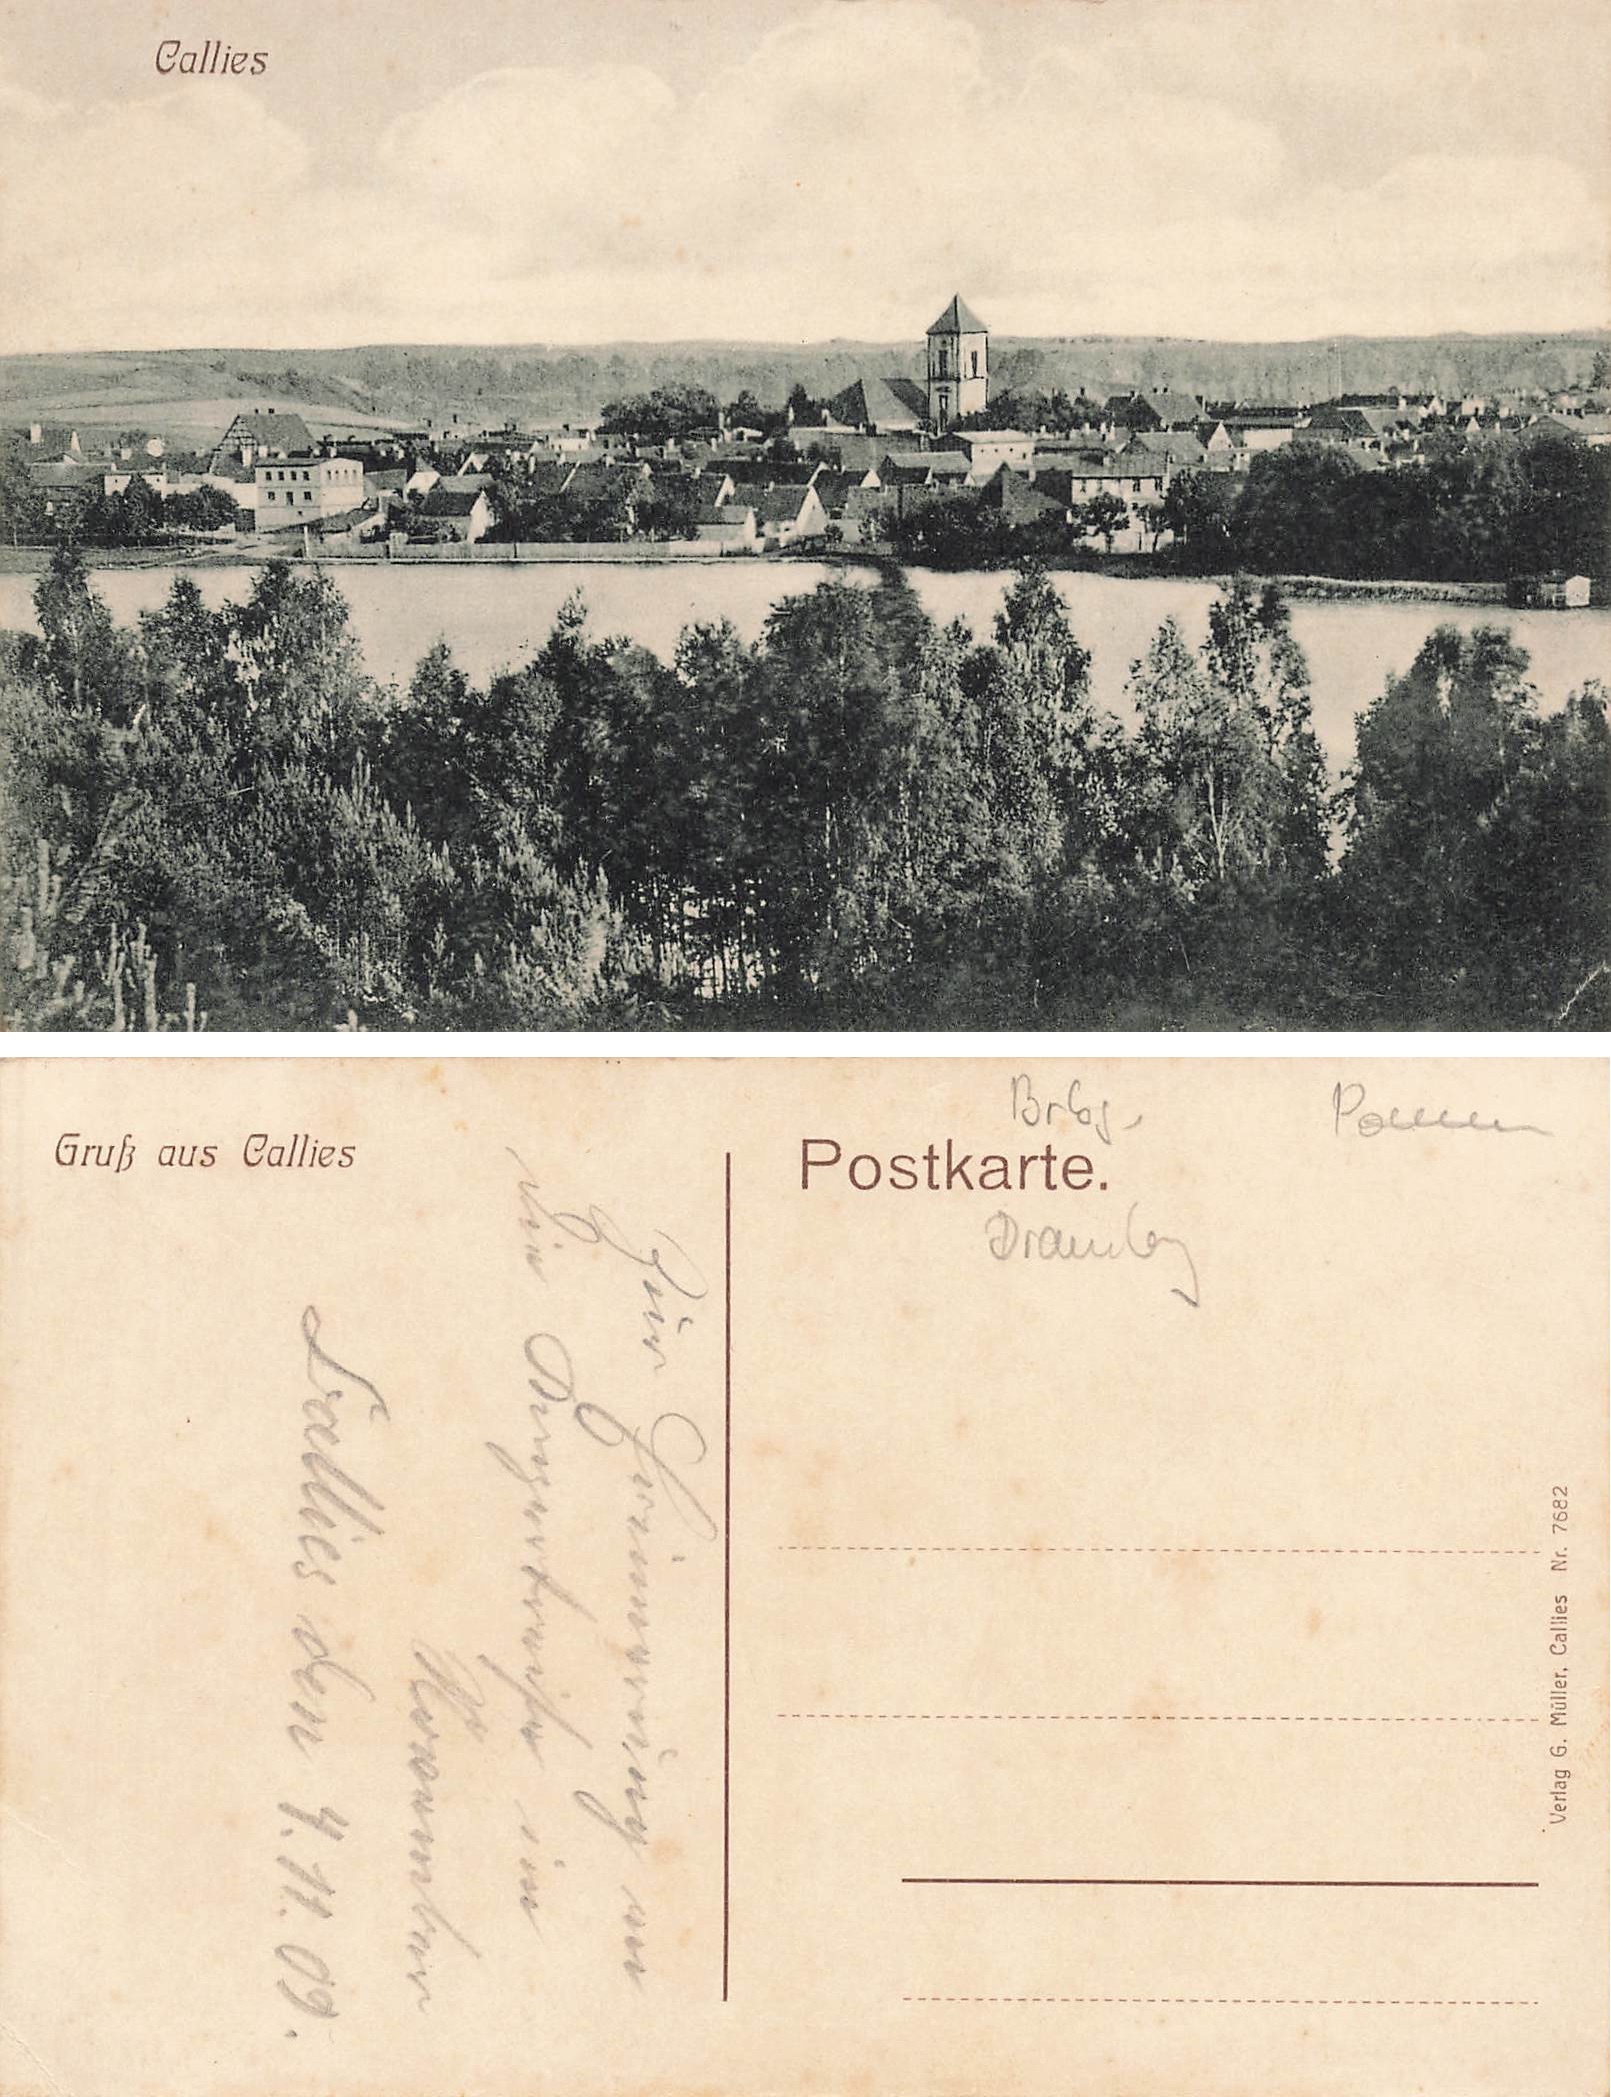 Callies
Gruß aus Callies
Postkarte.
Brbg.
Pommern
Dramburg
Zur Erinnerung an
die Dienstreise im
November
Callies den 4.11.09.
Verlag G. Müller, Callies Nr. 7682